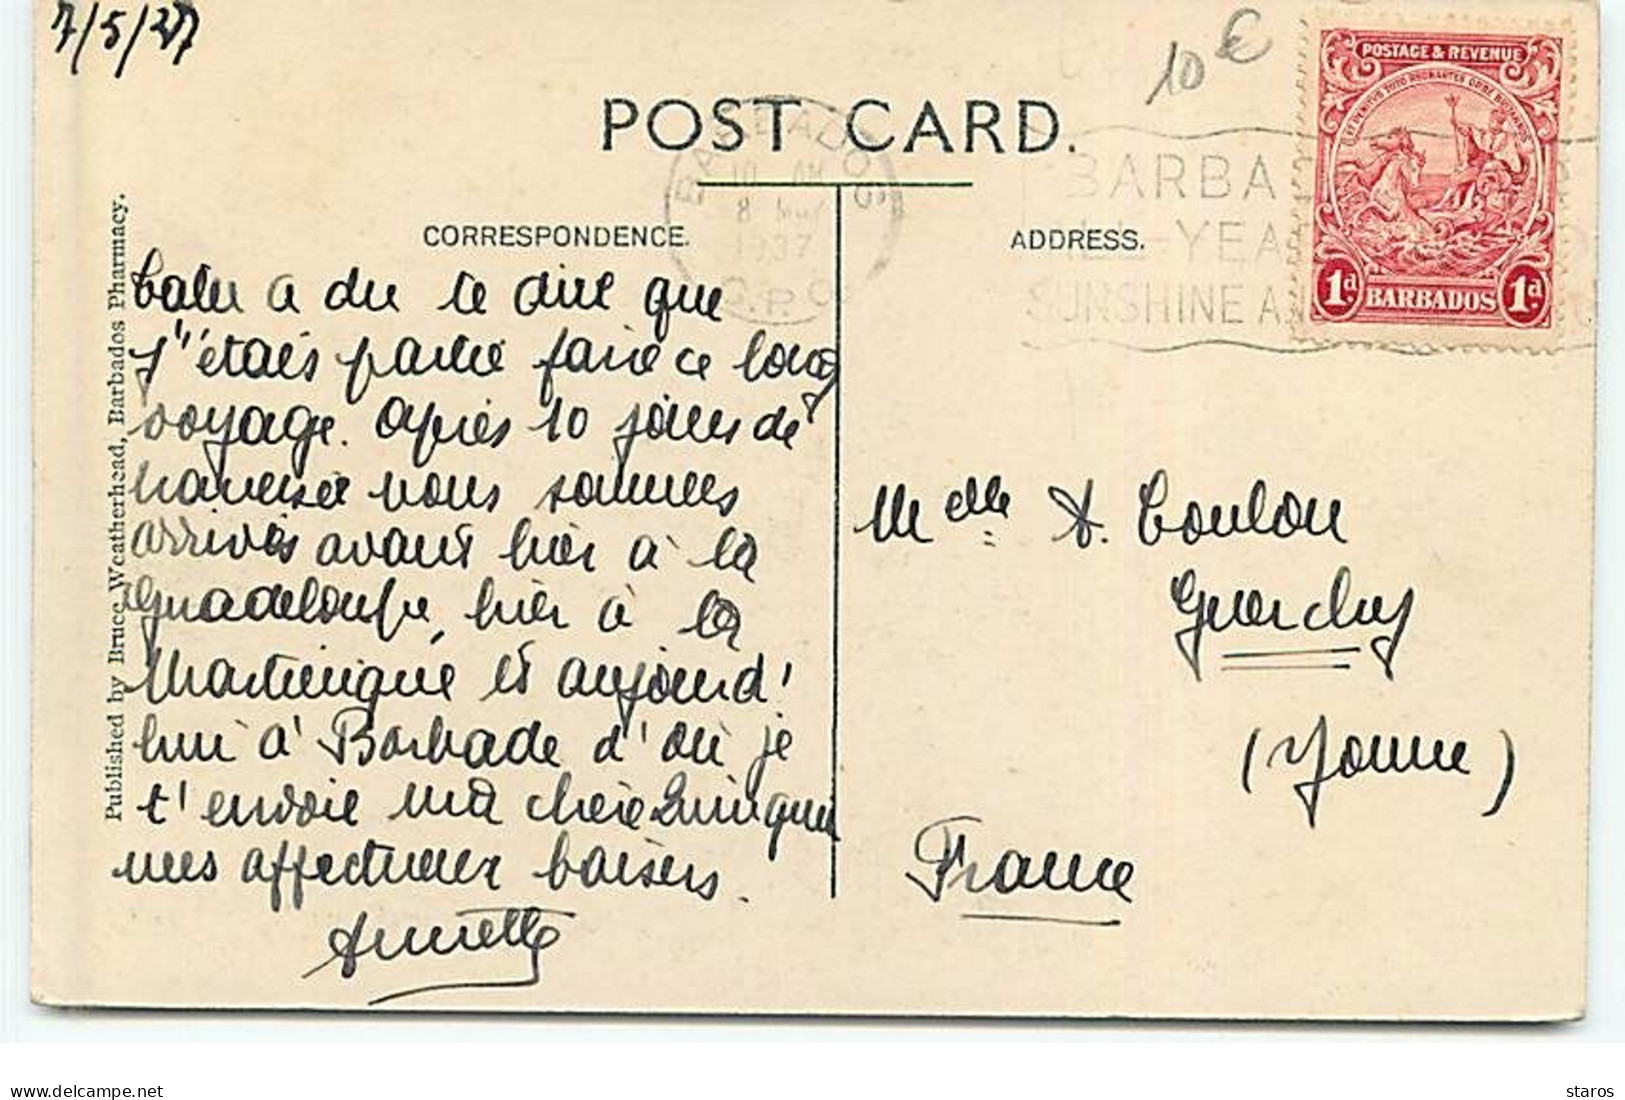 7/5/37
10 €
POSTAGE & REVENUE
1d BARBADOS 1d
POST CARD.
BARBADOS
10 AM
8 MAY
1937
G.P.O.
BARBA
ALL-YEA
SUNSHINE A
CORRESPONDENCE.
ADDRESS.
Published by Bruce Weatherhead, Barbados Pharmacy.
a du te dire que
j'étais partie faire ce long
voyage. Après 10 jours de
traversée nous sommes
arrivés avant hier à la
Guadeloupe, hier à la
Martinique et aujourd'
hui à Barbade d'où je
t'envoie ma chère
mes affectueux baisers.
Annette
Melle A. Coulon
Guerchy
(Yonne)
France
www.delcampe.net
staros